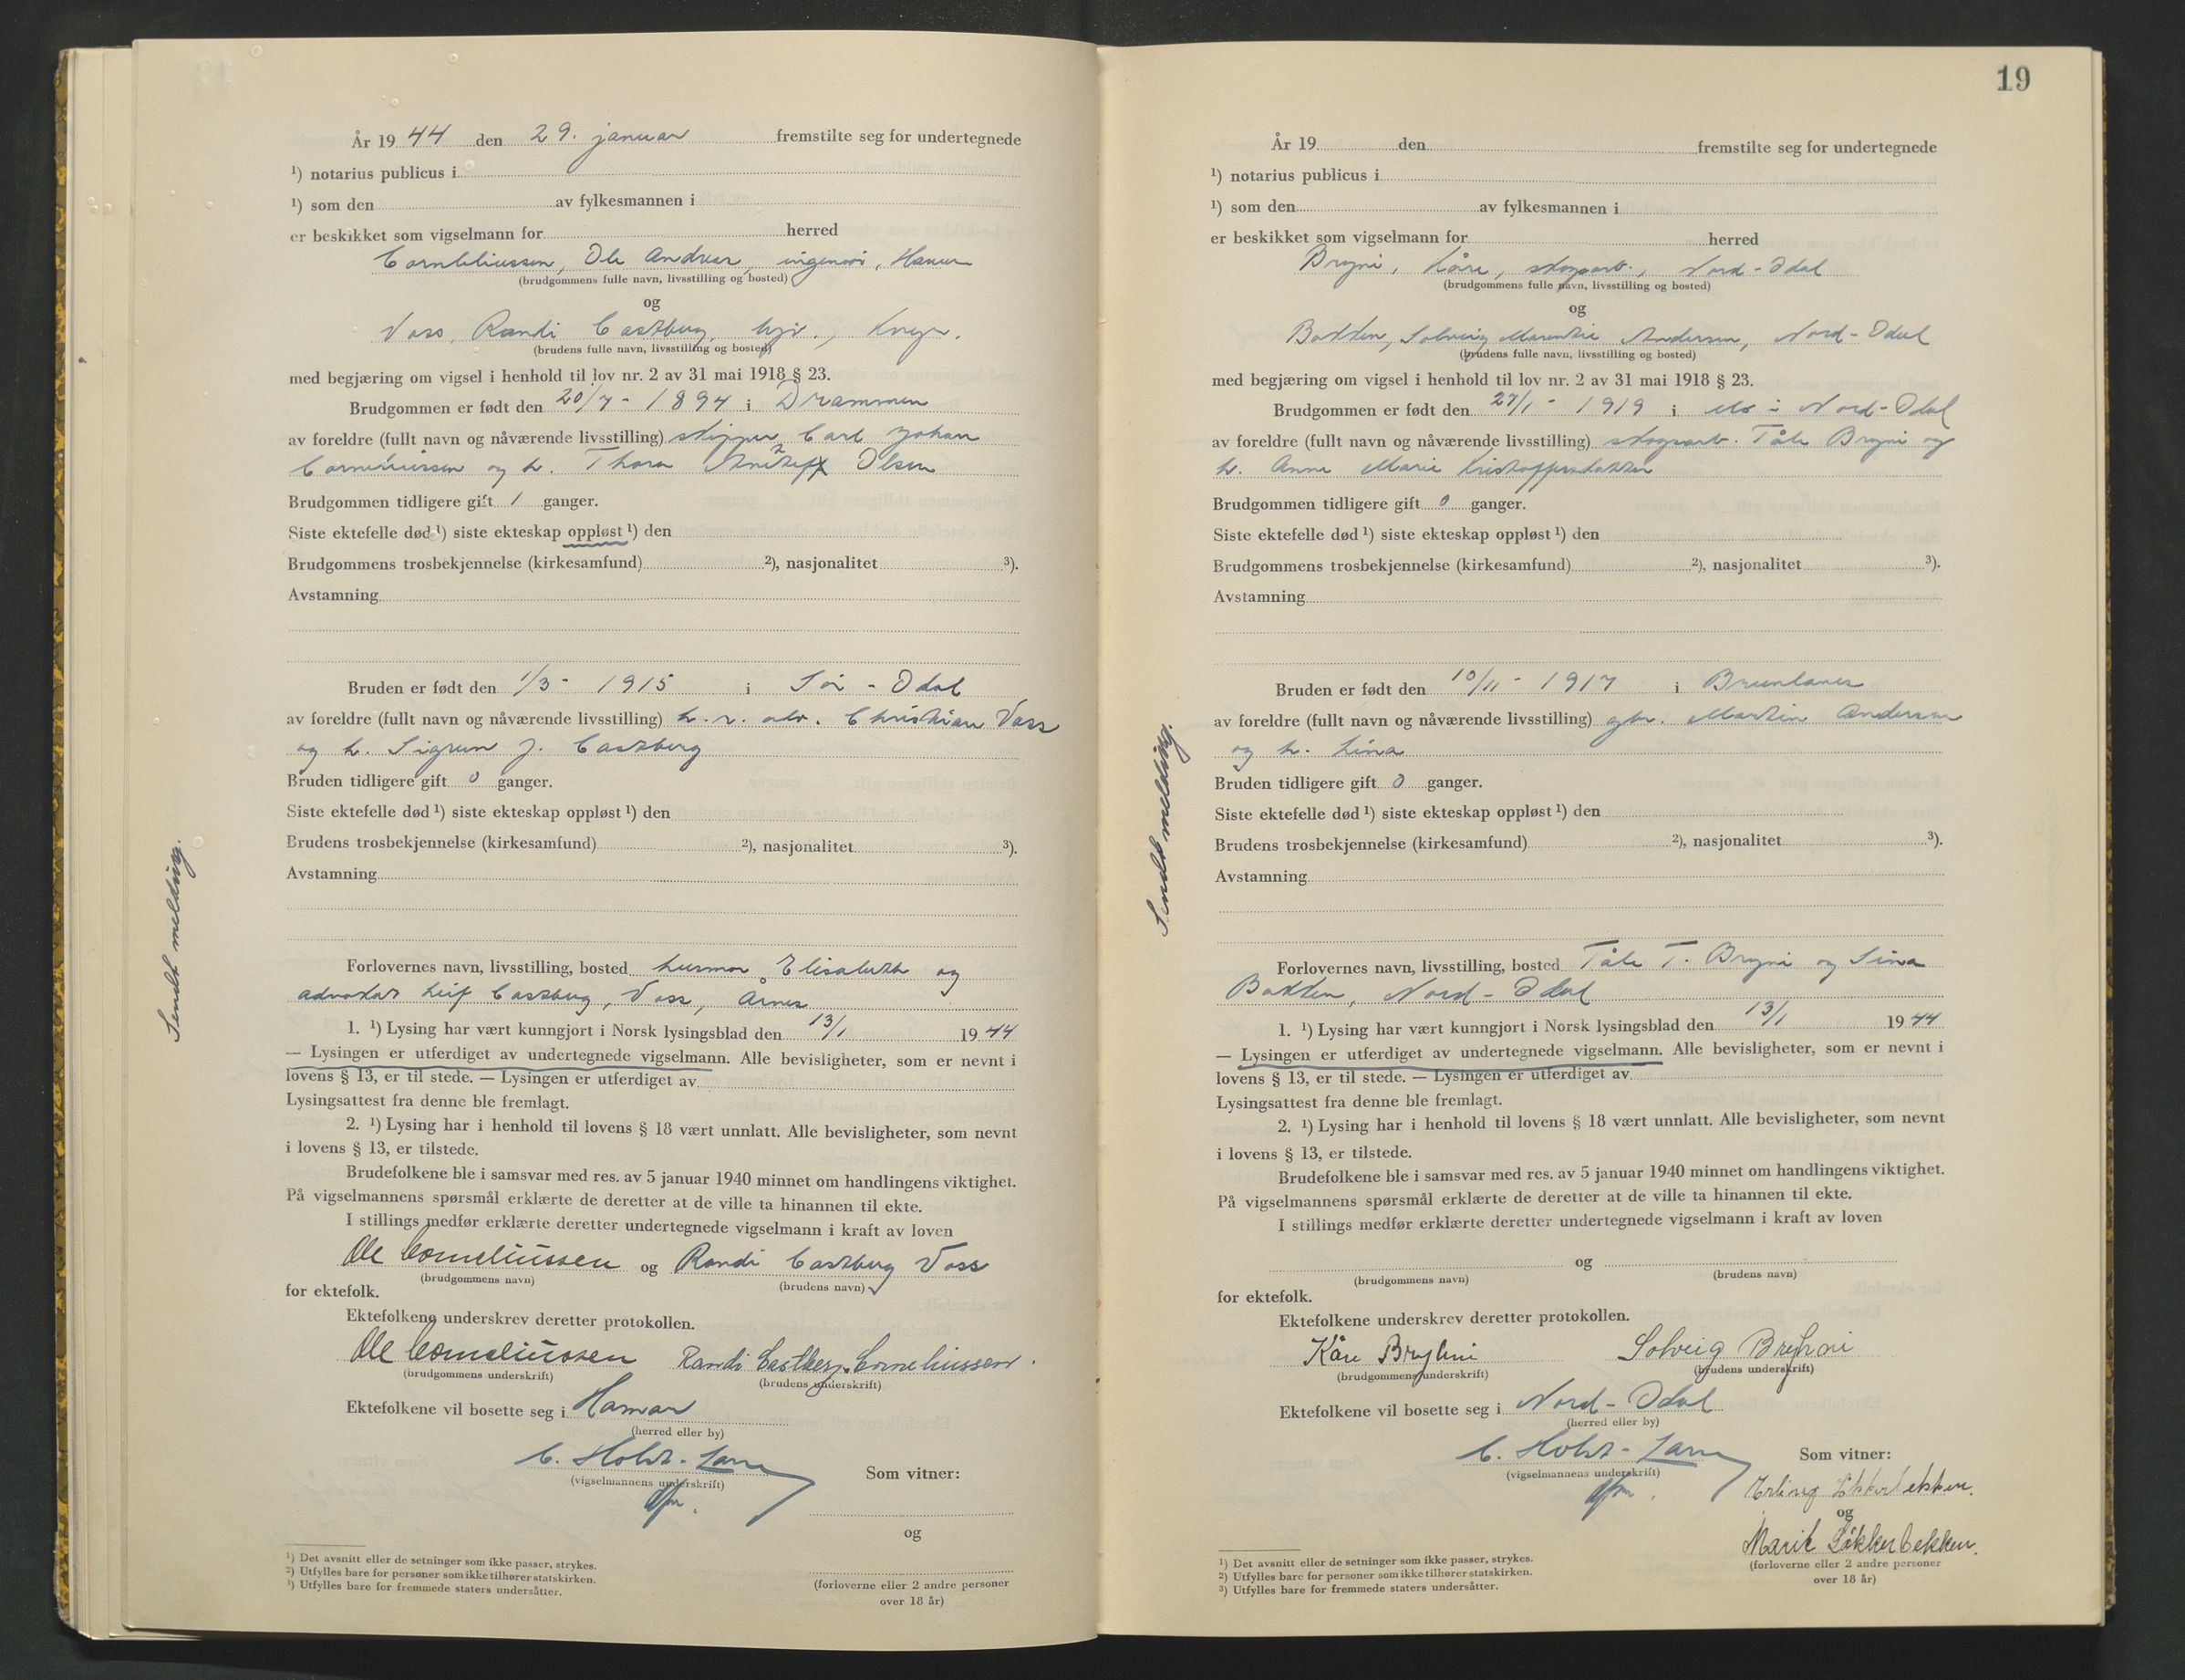 År 19 44 den 29. januar fremstilte seg for undertegnede
¹) notarius publicus i
¹) som den av fylkesmannen i
er beskikket som vigselmann for herred
Corneliussen, Ole Andreas, ingeniør, Hamar
(brudgommens fulle navn, livsstilling og bosted)
og
Voss, Randi Castberg,
(brudens fulle navn, livsstilling og bosted)
med begjæring om vigsel i henhold til lov nr. 2 av 31 mai 1918 § 23.
Brudgommen er født den 20/7 - 1894 i Drammen
av foreldre (fullt navn og nåværende livsstilling) skipper Carl Johan
Corneliussen og h. Thora Olsen
Brudgommen tidligere gift 1 ganger.
Siste ektefelle død ¹) siste ekteskap oppløst ¹) den
Brudgommens trosbekjennelse (kirkesamfund) ²), nasjonalitet ³).
Avstamning
Bruden er født den 1/3 - 1915 i Sør - Odal
av foreldre (fullt navn og nåværende livsstilling) h. r. adv. Christian Voss
og h. Sigrun J. Castberg
Bruden tidligere gift 0 ganger.
Siste ektefelle død ¹) siste ekteskap oppløst ¹) den
Brudens trosbekjennelse (kirkesamfund) ²), nasjonalitet ³).
Avstamning
Sendt melding.
Forlovernes navn, livsstilling, bosted husmor Elisabeth og
advokat Leif Castberg, Voss, Årnes
1. ¹) Lysing har vært kunngjort i Norsk lysingsblad den 13/1 19 44
— Lysingen er utferdiget av undertegnede vigselmann. Alle bevisligheter, som er nevnt i
lovens § 13, er til stede. — Lysingen er utferdiget av
Lysingsattest fra denne ble fremlagt.
2. ¹) Lysing har i henhold til lovens § 18 vært unnlatt. Alle bevisligheter, som nevnt
i lovens § 13, er tilstede.
Brudefolkene ble i samsvar med res. av 5 januar 1940 minnet om handlingens viktighet.
På vigselmannens spørsmål erklærte de deretter at de ville ta hinannen til ekte.
I stillings medfør erklærte deretter undertegnede vigselmann i kraft av loven
Ole Corneliussen og Randi Castberg Voss
(brudgommens navn) (brudens navn)
for ektefolk.
Ektefolkene underskrev deretter protokollen.
Ole Corneliussen Randi Castberg Corneliussen.
(brudgommens underskrift) (brudens underskrift)
Ektefolkene vil bosette seg i Hamar
(herred eller by)
C. Holst-Larsen
(vigselmannens underskrift) Som vitner:
og
(forloverne eller 2 andre personer
over 18 år)
¹) Det avsnitt eller de setninger som ikke passer, strykes.
²) Utfylles bare for personer som ikke tilhører statskirken.
³) Utfylles bare for fremmede staters undersåtter.
19
År 19 den fremstilte seg for undertegnede
¹) notarius publicus i
¹) som den av fylkesmannen i
er beskikket som vigselmann for herred
Bryni, Kåre, skogsarb., Nord-Odal
(brudgommens fulle navn, livsstilling og bosted)
og
Bakken, Solveig Andersen, Nord-Odal
(brudens fulle navn, livsstilling og bosted)
med begjæring om vigsel i henhold til lov nr. 2 av 31 mai 1918 § 23.
Brudgommen er født den 27/1 - 1919 i Mo i Nord-Odal
av foreldre (fullt navn og nåværende livsstilling) skogsarb. Tåle Bryni og
h. Anne Marie Kristoffersdatter
Brudgommen tidligere gift 0 ganger.
Siste ektefelle død ¹) siste ekteskap oppløst ¹) den
Brudgommens trosbekjennelse (kirkesamfund) ²), nasjonalitet ³).
Avstamning
Bruden er født den 10/11 - 1917 i Brunlanes
av foreldre (fullt navn og nåværende livsstilling) gbr. Martin Andersen
og h. Lina
Bruden tidligere gift 0 ganger.
Siste ektefelle død ¹) siste ekteskap oppløst ¹) den
Brudens trosbekjennelse (kirkesamfund) ²), nasjonalitet ³).
Avstamning
Sendt melding.
Forlovernes navn, livsstilling, bosted Tåle T. Bryni og Lina
Bakken, Nord-Odal
1. ¹) Lysing har vært kunngjort i Norsk lysingsblad den 13/1 19 44
— Lysingen er utferdiget av undertegnede vigselmann. Alle bevisligheter, som er nevnt i
lovens § 13, er til stede. — Lysingen er utferdiget av
Lysingsattest fra denne ble fremlagt.
2. ¹) Lysing har i henhold til lovens § 18 vært unnlatt. Alle bevisligheter, som nevnt
i lovens § 13, er tilstede.
Brudefolkene ble i samsvar med res. av 5 januar 1940 minnet om handlingens viktighet.
På vigselmannens spørsmål erklærte de deretter at de ville ta hinannen til ekte.
I stillings medfør erklærte deretter undertegnede vigselmann i kraft av loven
og
(brudgommens navn) (brudens navn)
for ektefolk.
Ektefolkene underskrev deretter protokollen.
Kåre Bryhni Solveig Bryhni
(brudgommens underskrift) (brudens underskrift)
Ektefolkene vil bosette seg i Nord-Odal
(herred eller by)
C. Holst-Larsen Som vitner:
(vigselmannens underskrift)
Erling Løkkerbekken.
og
Marit Løkkerbekken.
(forloverne eller 2 andre personer
over 18 år)
¹) Det avsnitt eller de setninger som ikke passer, strykes.
²) Utfylles bare for personer som ikke tilhører statskirken.
³) Utfylles bare for fremmede staters undersåtter.